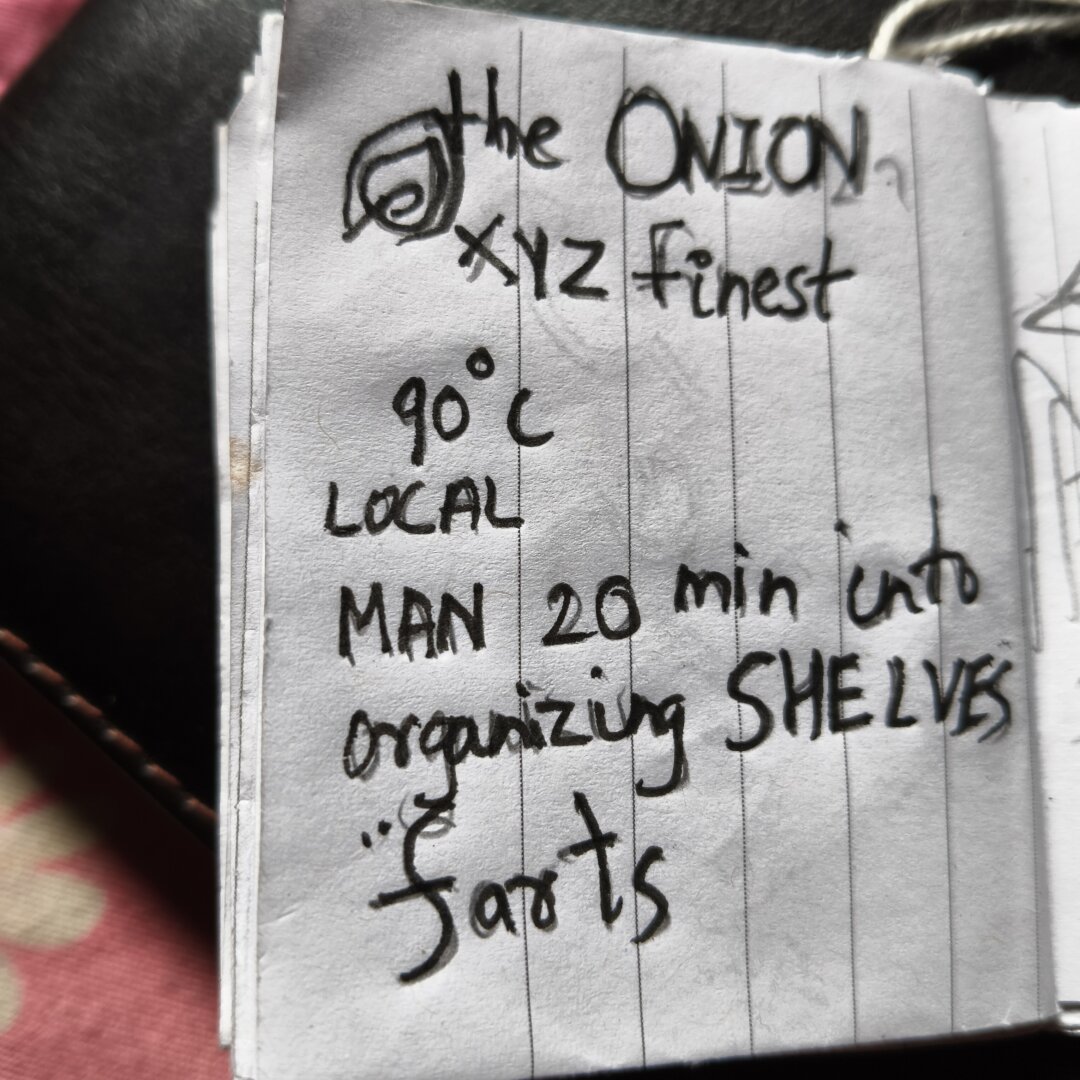 the ONION
XYZ finest
90°C
LOCAL
MAN 20 min into
organizing SHELVES
farts